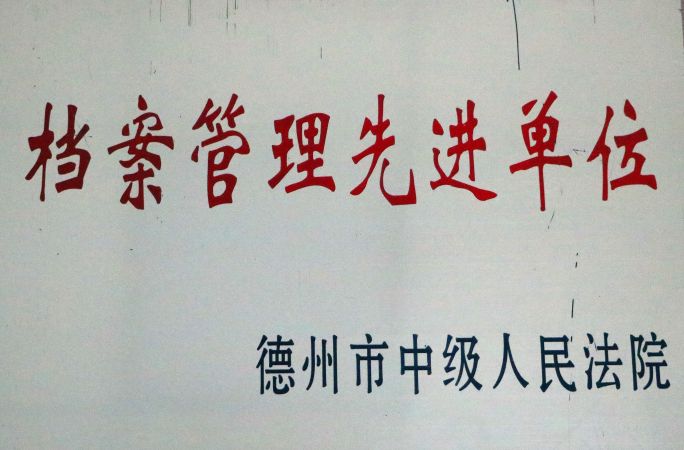 档案管理先进单位
德州市中级人民法院